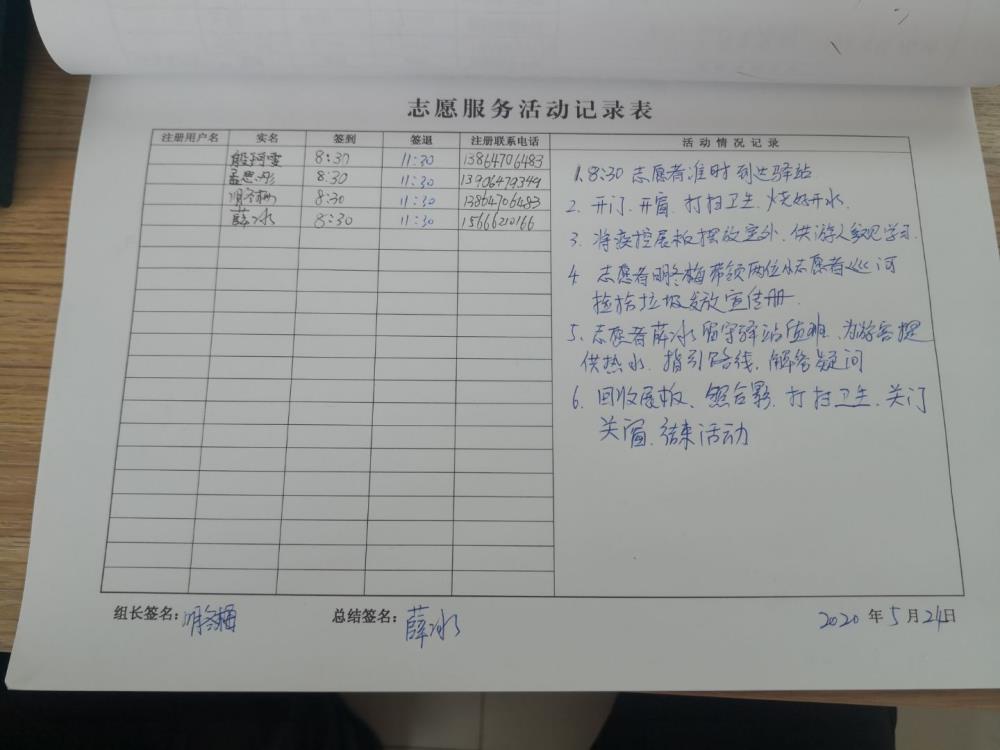 志愿服务活动记录表
注册用户名 实名 签到 签退 注册联系电话 活动情况记录
8:30 11:30 13864706483
孟思彤 8:30 11:30 13906479349
明冬梅 8:30 11:30 13864706483
薛冰 8:30 11:30 15666210166
1. 8:30 志愿者准时到达驿站
2. 开门、开窗、打扫卫生、烧好开水.
3. 将疫控展板摆放室外、供游人参观学习.
4 志愿者明冬梅带领两位小志愿者巡河
捡拾垃圾发放宣传册.
5. 志愿者薛冰留守驿站值班、为游客提
供热水、指引路线、解答疑问
6. 回收展板、照合影、打扫卫生、关门
关窗、结束活动
组长签名:明冬梅 总结签名:薛冰 2020年5月24日